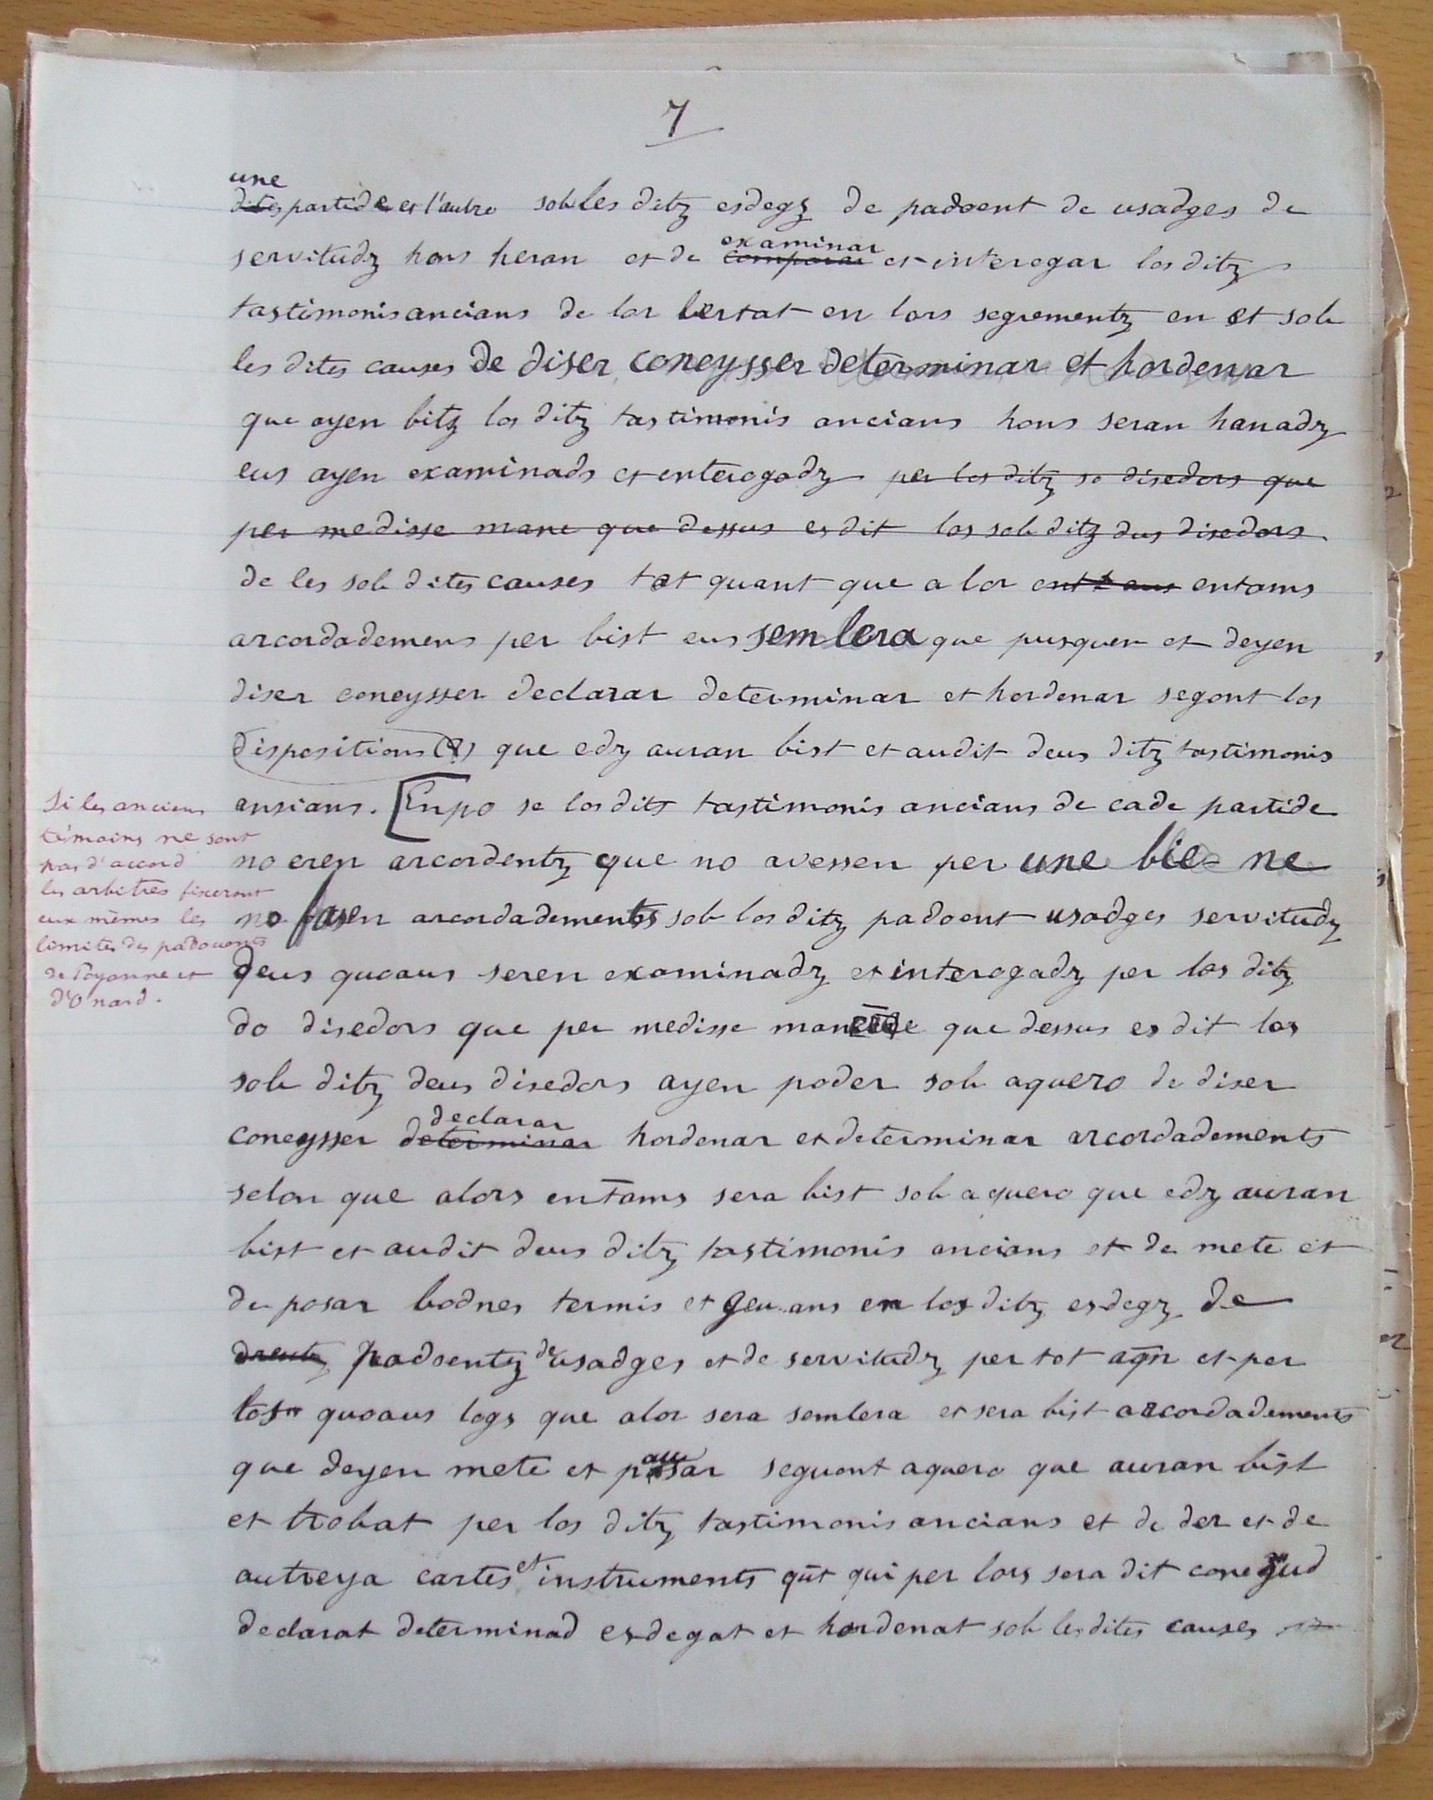 7
une
dites partide et l'autre sob les ditz esdegz de padoent de usadges de
servitudz hons heran et de comparar examinar et interogar los ditz
tastimonis ancians de lor bertat en lors segrementz en et sob
les dites causes de diser coneysser determinar et hordenar
que ayen bitz los ditz tastimonis ancians hons seran hanadz
eus ayen examinads et enterogadz per los ditz so disedors que
per medisse mane que dessus es dit los sob ditz dus disedors
de les sob dites causes tot quant que a lor entams
arcordademens per bist eus semlera que pusquen et deyen
diser coneysser declarar determinar et hordenar segont los
dispositions (?) que edz auran bist et audit deus ditz tastimonis
ansians. [Enpo se los dits tastimonis ancians de cade partide
no eren arcordentz que no avessen per une bie ne
no fasen arcordadements sob los ditz padoent usadges servitudz
deus quoaus seren examinadz et interogadz per los ditz
do disedors que per medisse manere que dessus es dit los
sob ditz deus disedors ayen poder sob aquero de diser
coneysser determinar declarar hordenar et determinar arcordadements
selon que alors entams sera bist sob aquero que edz auran
bist et audit deus ditz tastimonis ancians et de mete et
de posar bodnes termis et en los ditz esdegz de
padoentz de usadges et de servitudz per tot aqn et per
totz quoaus logs que alor sera semlera et sera bist arcordadements
que deyen mete et pausar seguont aquero que auran bist
et trobat per los ditz tastimonis ancians et de der et de
autreya cartes et instruments qut qui per lors sera dit conegud
declarat determinad esdegat et hordenat sob les dites causes et
Si les anciens
témoins ne sont
pas d'accord
les arbitres fixeront
eux mêmes les
limites des padouents
de Poyanne et
d'Onard.